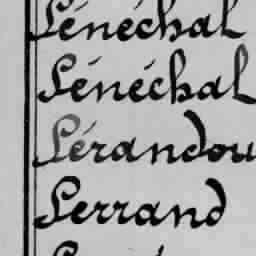 Sénéchal
Sénéchal
Sérandou
Serrand